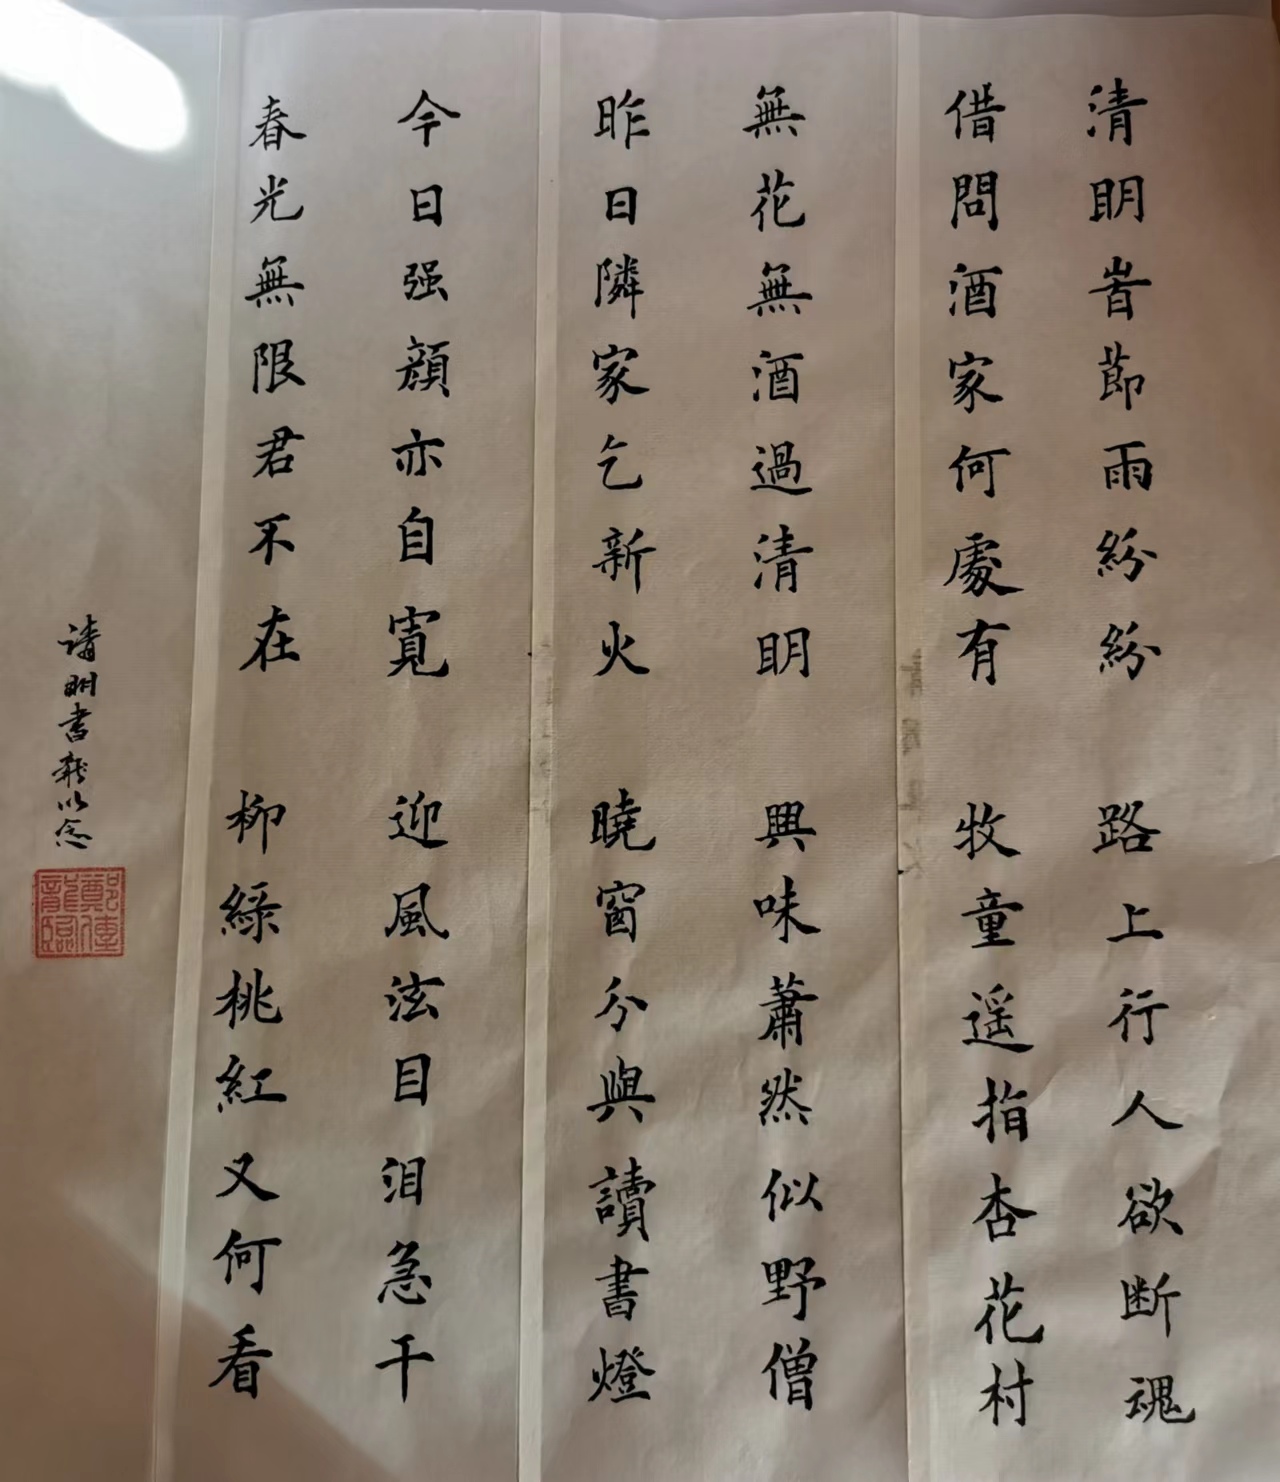 清明旹節雨紛紛 路上行人欲断魂
借問酒家何處有 牧童遥指杏花村
無花無酒過清明 興味蕭然似野僧
昨日隣家乞新火 曉窗分與讀書燈
今日强顔亦自寬 迎風泫目泪急干
春光無限君不在 柳綠桃紅又何看
清明書 以念